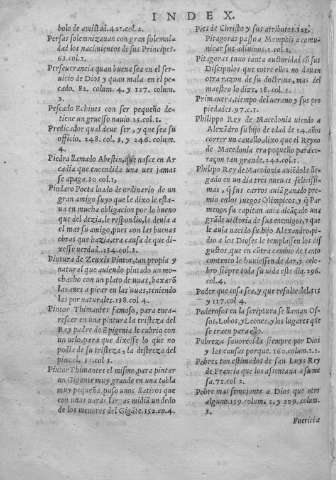 INDEX.
bolo de amistad. 421. col. 1.
Persas solennizauan con gran solemni-
dad los nacimientos de sus Principes.
63. col. 1.
Perseuerancia quan buena sea en el ser-
uicio de Dios y quan mala en el pe-
cado, 82. colum. 4. y 127. colum.
3.
Pescado Echines con ser pequeño de-
tiene un gruesso nauio. 15. col. 1.
Predicador qual deue ser, y que sea su
officio. 248. col. 2. y 246. colum.
4.
Piedra llamado Abestin, que nasce en Ar
cadia que encendida una uez jamas
se apaga. 20. col. 3.
Pindaro Poeta loado de ordinario de un
gran amigo suyo que le dixo le esta-
ua en mucha obligacion por lo bueno
que del dezia, le respondio, le deuia a
el mas su amigo, pues con las buenas
obras que hazia, era causa de que di-
xesse uerdad. 154. col. 1.
Pintura de Zeuxis Pintor, tan propia y
natural que auiendo pintado un mo-
chacho con un plato de uuas, baxarõ
las aues a picar en las uuas, teniendo
las por naturales. 118. col. 4
Pintor Thimantes famoso, para enca-
rescer en una pintura la tristeza del
Rey padre de Epigenia le cubrio con
un uelo, para que dixesse lo que no
podia de su tristeza, la destreza del
pincel. 13. col. 1.
Pintor Thimantes el mismo, para pintar
un Gigante muy grande en una tabla
muy pequeña, puso unos Satiros que
con unas uaras largas media un dedo
de los menores del Gigãte. 152. co. 4.
Pies de Christo y sus attributos.
Pitagoras passo a Memphis a comu-
nicar sus adiuinos. 1. col. 1.
Pitagoras tuuo tanta auctoridad cõ sus
Discipulos que entre ellos no dauan
otra razon de su doctrina, mas del
maestro lo dixo. 18. col. 1.
Primauera, tiempo del uerano y sus pro
piedades. 97. c. 1.
Philippo Rey de Macedonia uiendo a
Alexãdro su hijo de edad de 14. años
correr un cauallo, dixo que el Reyno
de Macedonia era pequeño para co-
raçon tan grande. 142. col. 1.
Philipo Rey de Macedonia auiẽdole lle
gado en un dia tres nueuas felicissi-
mas, q̃ sus carros auia ganado pre-
mio en los juegos Olimpicos, y q̃ Par
menon su capitan auia alcãçado una
grãde uictoria de sus enemigos, y que
le auia nacido su hijo Alexandro, pi-
dio a los Dioses le templassen los gus
tos q̃ en el citara cumbo de tanto con
tento se huuiessen de dar, y celo-
bro siẽpre toda su uida este dia. 196.
col. 4.
Poder que cosa sea, y que resulte del. 16
y 117. col. 4.
Poderosos en la scriptura se llaman Os-
sos, Lobos, y Leones, y los lugares que
se traen para ello.
Pobreza fauorecida siempre por Dios
y las causas porque. 160. colum. 1.
Pobres son estimados de san Luys Rey
de Francia que los assentaua a su me
sa. 72. col. 2.
Pobre mas semejante a Dios que otro
alguno. 159. colum. 2. y 229. colum.
3.
Poetrecia